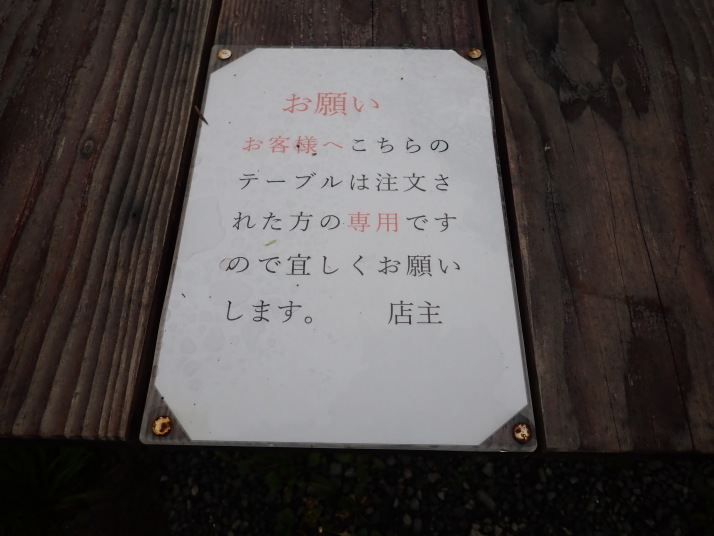 お願い
お客様へこちらの
テーブルは注文さ
れた方の専用です
ので宜しくお願い
します。　　店主